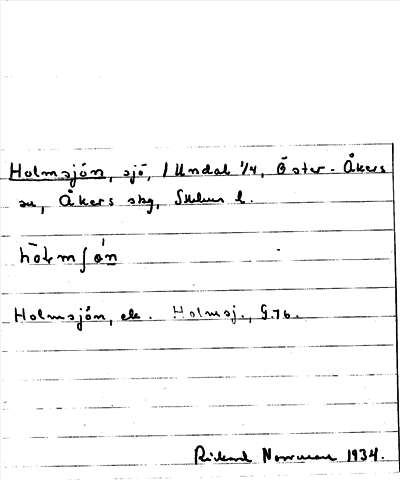 Holmsjön, sjö, 1 Undal 1/4, Öster-Åkers
sn, Åkers skg, Sthlms l.
hólmʃön
Holmsjön, ek. Holmsj., G.76.
Rickard Norrman 1934.